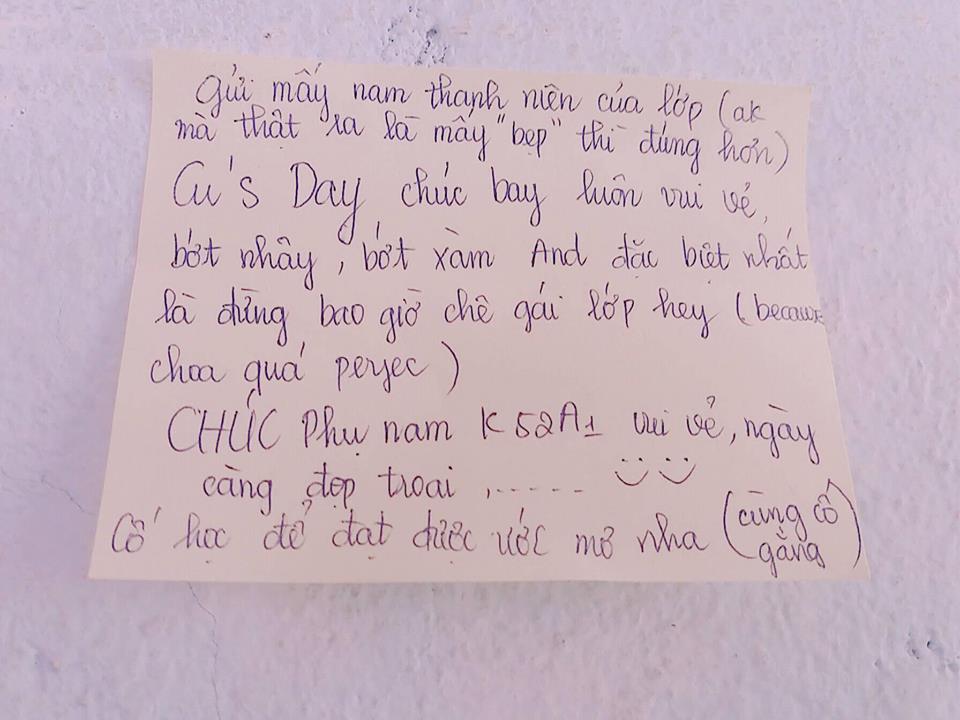 Gửi mấy nam thanh niên của lớp (ak
mà thật ra là mấy "bẹp" thì đúng hơn)
Cu's Day chúc bay luôn vui vẻ,
bớt nhây, bớt xàm And đặc biệt nhất
là đừng bao giờ chê gái lớp hey (because
choa quá perfec)
CHÚC Phụ nam K52A1 vui vẻ, ngày
càng đẹp troai ,......
Cố học để đạt được ước mơ nha (cùng cố
gằng)